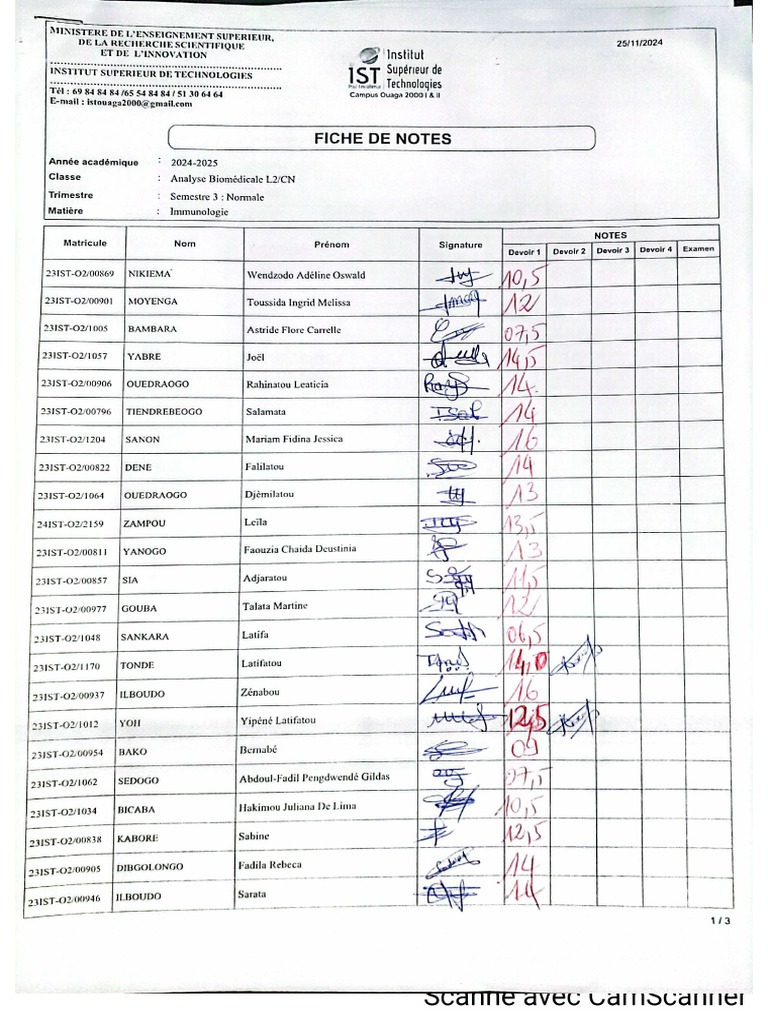 MINISTERE DE L'ENSEIGNEMENT SUPERIEUR,
DE LA RECHERCHE SCIENTIFIQUE
ET DE L'INNOVATION
INSTITUT SUPERIEUR DE TECHNOLOGIES
Tél : 69 84 84 84 /65 54 84 84 / 51 30 64 64
E-mail : istouaga2000@gmail.com
IST Institut Supérieur de Technologies
Campus Ouaga 2000 I & II
25/11/2024
FICHE DE NOTES
Année académique : 2024-2025
Classe : Analyse Biomédicale L2/CN
Trimestre : Semestre 3 : Normale
Matière : Immunologie
Matricule Nom Prénom Signature NOTES
Devoir 1 Devoir 2 Devoir 3 Devoir 4 Examen
23IST-O2/00869 NIKIEMA Wendzodo Adéline Oswald 10,5
23IST-O2/00901 MOYENGA Toussida Ingrid Melissa 12
23IST-O2/1005 BAMBARA Astride Flore Carrelle 07,5
23IST-O2/1057 YABRE Joël 14,5
23IST-O2/00906 OUEDRAOGO Rahinatou Leaticia 14
23IST-O2/00796 TIENDREBEOGO Salamata 14
23IST-O2/1204 SANON Mariam Fidina Jessica 16
23IST-O2/00822 DENE Falilatou 14
23IST-O2/1064 OUEDRAOGO Djémilatou 13
24IST-O2/2159 ZAMPOU Leïla 13,5
23IST-O2/00811 YANOGO Faouzia Chaida Deustinia 13
23IST-O2/00857 SIA Adjaratou 11,5
23IST-O2/00977 GOUBA Talata Martine 12
23IST-O2/1048 SANKARA Latifa 06,5
23IST-O2/1170 TONDE Latifatou 14,0
23IST-O2/00937 ILBOUDO Zénabou 16
23IST-O2/1012 YOH Yipéné Latifatou 12,5
23IST-O2/00954 BAKO Bernabé 09
23IST-O2/1062 SEDOGO Abdoul-Fadil Pengdwendé Gildas 07,5
23IST-O2/1034 BICABA Hakimou Juliana De Lima 10,5
23IST-O2/00838 KABORE Sabine 12,5
23IST-O2/00905 DIBGOLONGO Fadila Rebeca 14
23IST-O2/00946 ILBOUDO Sarata 14
1 / 3
Scanné avec CamScanner